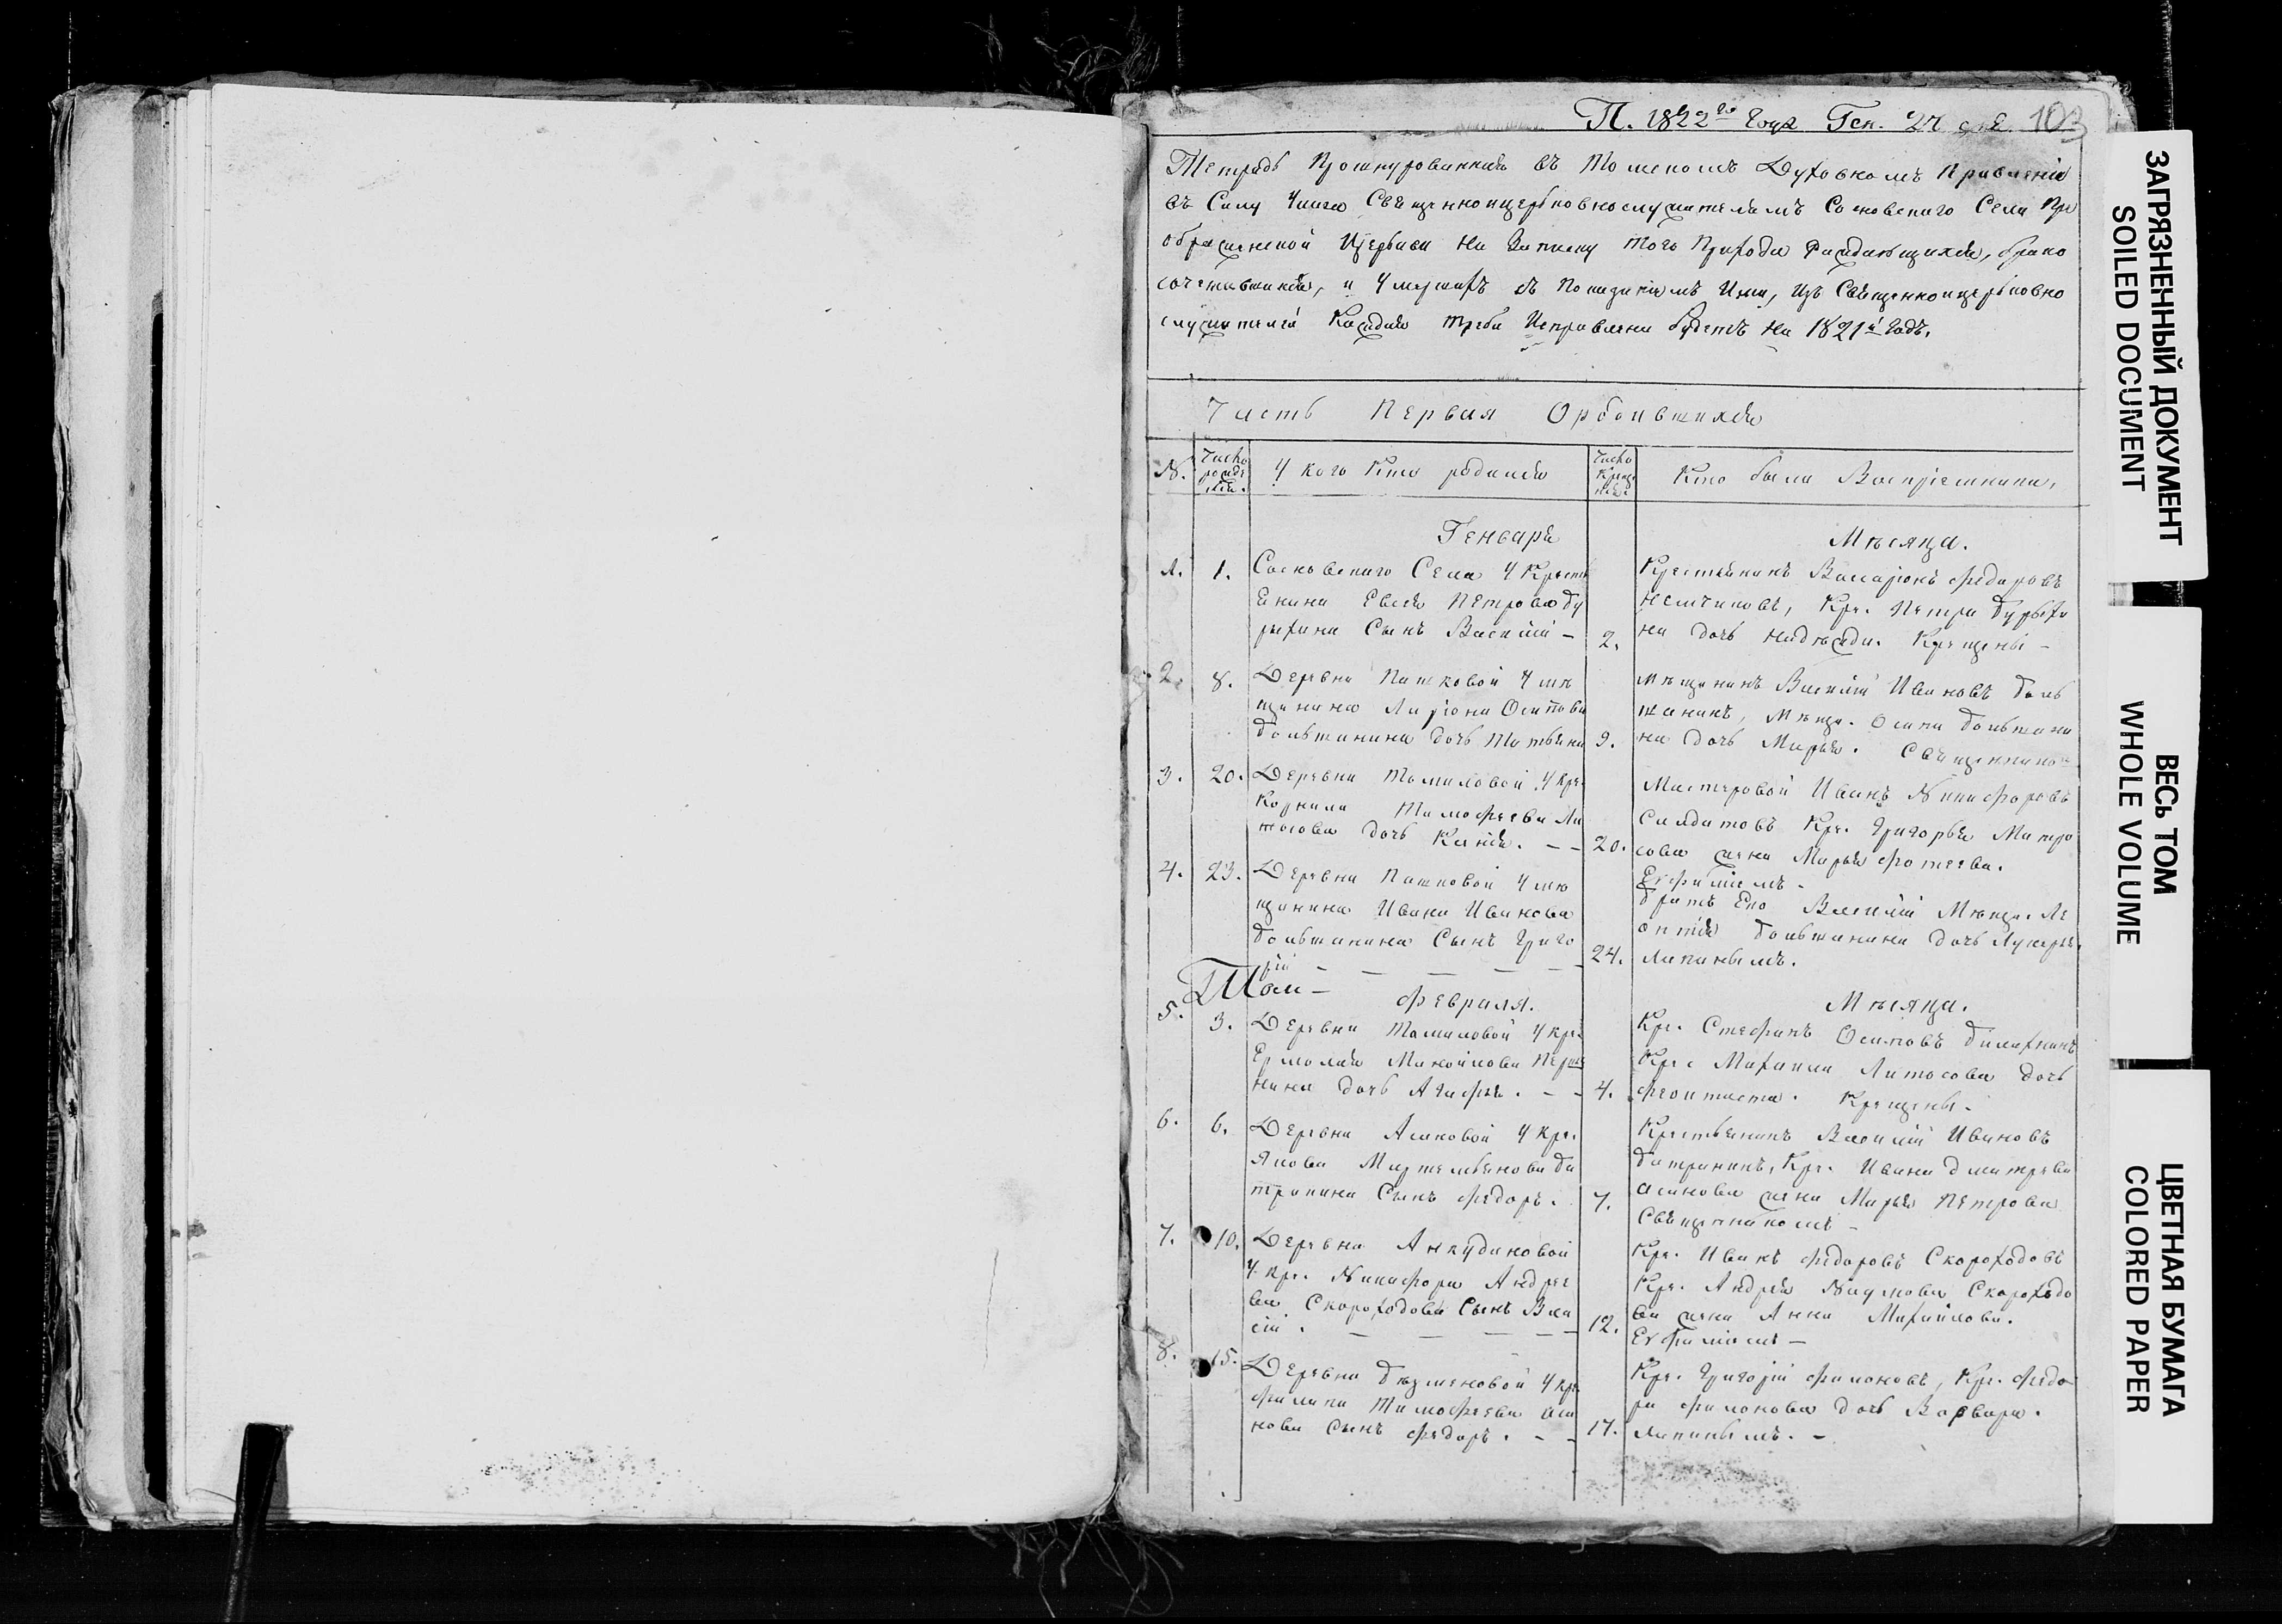 П. 1822го Года Ген. 27 дня 103
Тетрадь Прошнурованная въ Томскомъ Духовномъ Правлении
въ Силу Указа Священноицерковнослужителямъ Сосновскаго Села Пре
ображенской Церкви На Записку Того Прихода Раждающихся, брако
сочетавшихся, и Умершихъ съ Показаниемъ Кѣмъ, Изъ Священноицерковно
служителей Каждая Треба Исправлена будетъ На 1821й Годъ.
Часть Первая О родившихся
№. Число рожде нія. У кого Кто родился Число Креще нія Кто были Воспріемники,
Генваря Мѣсяца.
1. 1. Сосновскаго Села У Крестья
янина Евсея Петрова Бу
рыхина Сынъ Василій –
2. Крестьянинъ Виссаріонъ Федоровъ
Кре. Петра Бурыхи
на дочь Надежда. Крещены –
2. 8. Деревни Пашковой У мѣ
щанина Ларіона Осипова
Больманина дочь Татьяна
9. Мѣщанинъ Василій Ивановъ Боль
манинъ, Мѣщ. Осипа Больмани
на дочь Марья. Священникомъ
3. 20. Деревни Томиловой У кре.
Корнила Тимофеева Ла
тосова дочь Ксенія. – –
20. Мастеровой Иванъ Никифоровъ
Солдатовъ Кре. Григорья Матро
сова жена Марья Фотеева.
Ефимiемъ –
4. 23. Деревни Пашковой У мѣ
щанина Ивана Иванова
Больманина Сынъ Григо
рій – – – – –
24. братъ Его Василій Мѣщ. Ле
онтія Больманина дочь Лукерья.
Лапинымъ.
Том –
Февраля. Мѣсяца.
5. 3. Деревни Томиловой У кре.
Ермолая Манойлова
нина дочь Агафья. – –
4. Кре. Стефанъ Осиповъ
Кре. Михаила Латосова дочь
Феоктиста. Крещены.
6. 6. Деревни Асановой У кре.
Якова Мартемьянова Ба
транина Сынъ Федоръ.
7. Крестьянинъ Василій Ивановъ
Батранинъ, Кре. Ивана Дмитрева
Асанова жена Марья Петрова
Священникомъ –
7. 10. Деревни Анкудиновой
У кре. Никифора Андрее
ва Скороходова Сынъ Вла
сій. – – – – –
12. Кре. Иванъ Федоровъ Скороходовъ
Кре. Андрея Наумова Скороходо
ва жена Анна Михайлова.
Ефимiемъ –
8. 15. Деревни Бѣзменовой У кре.
Филипа Тимофеева Аса
нова Сынъ Федоръ. – –
17. Кре. Григорій Филоновъ, Кре. Федо
ра Филонова дочь Варвара.
Лапинымъ. –
ЗАГРЯЗНЕННЫЙ ДОКУМЕНТ
SOILED DOCUMENT
ВЕСЬ ТОМ
WHOLE VOLUME
ЦВЕТНАЯ БУМАГА
COLORED PAPER